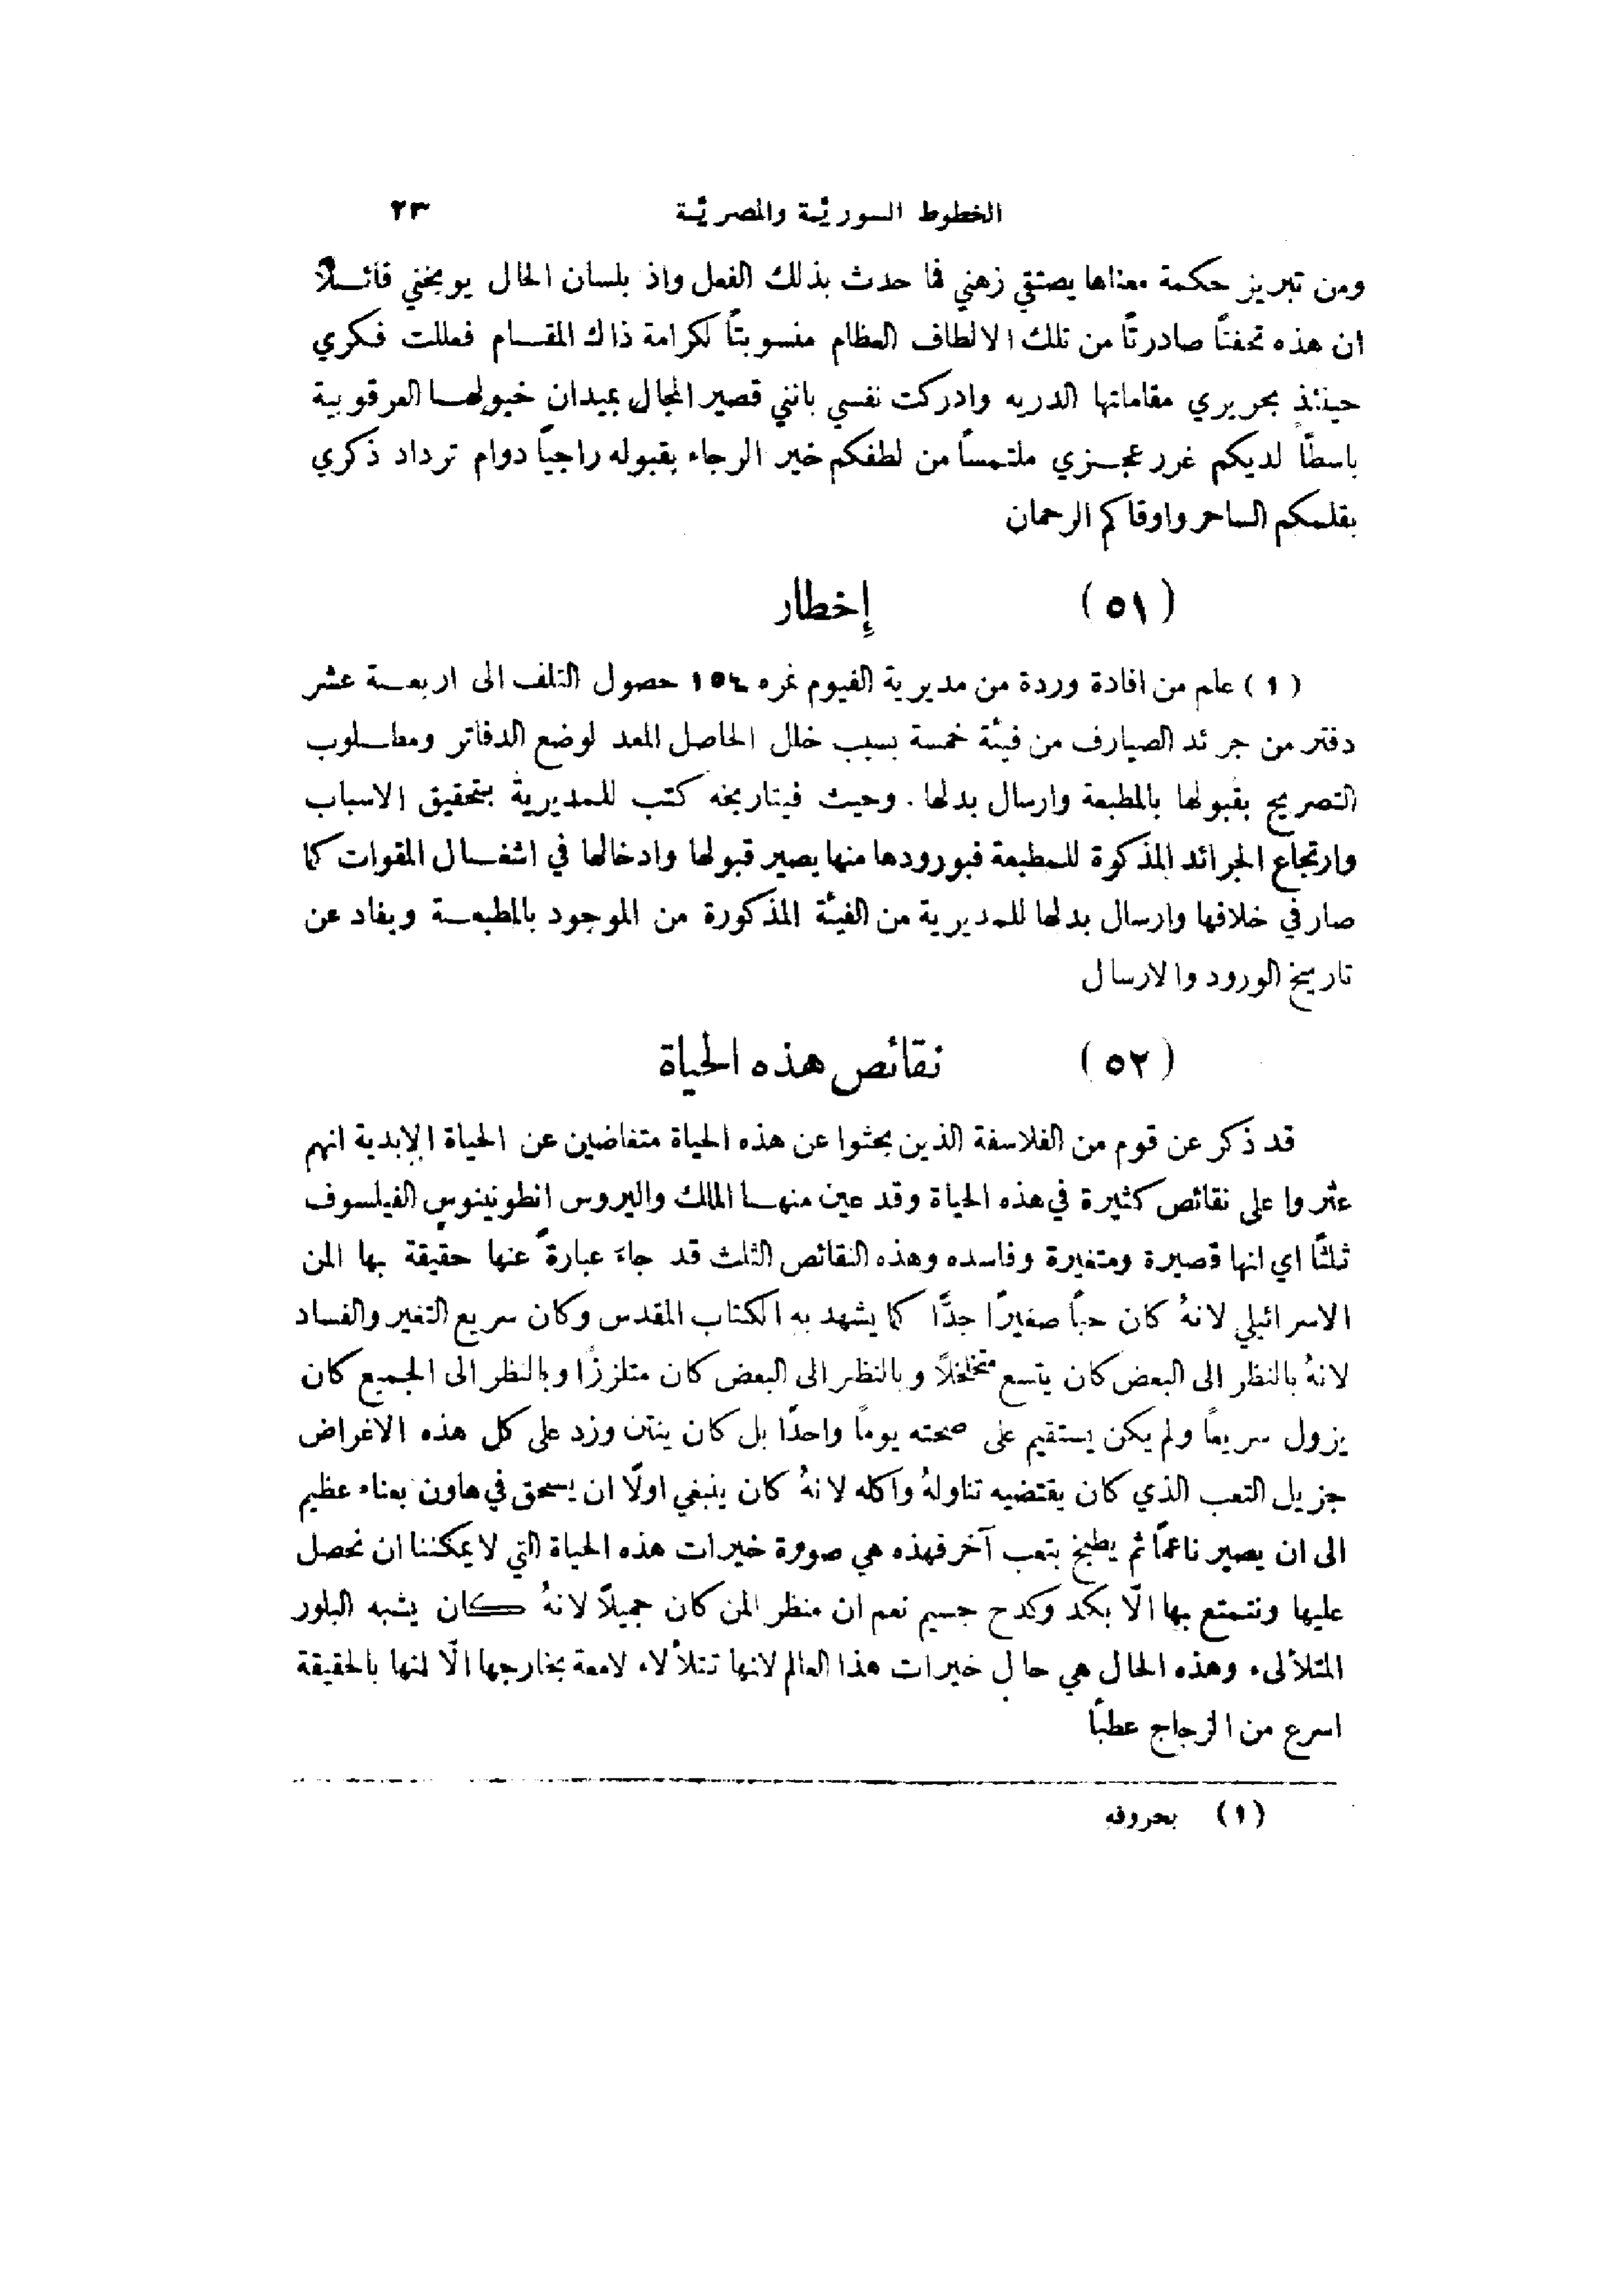 الخطوط السوريَّة والمصريَّة ٢٣
ومن تبريز حكمة معناها يصتقي زهني فما حدث بذلك الفعل واذ بلسان الحال يوبخني قائلاً
ان هذه تحفتاً صادرتاً من تلك الالطاف العظام منسوبتاً لكرامة ذاك المقسام فعللت فكري
حينئذٍ بحريري مقاماتها الدريه وادركت نفسي بانني قصير المجال بميدان خيولها العرقوبية
باسطاً لديكم غرر عجزي ملتمساً من لطفكم خير الرجاء بقبوله راجياً دوام ترداد ذكري
بقلمكم الساحر واوقاكم الرحمان
(٥١) إخطار
(١) علم من افادة وردة من مديرية الفيوم نمره ١٥٤ حصول التلف الى اربعة عشر
دفتر من جرئد الصيارف من فيئة خمسة بسبب خلل الحاصل المعد لوضع الدفاتر ومطلوب
التصريح بقبولها بالمطبعة وارسال بدلها. وحيث فيتاريخه كتب للمديرية بتحقيق الاسباب
وارتجاع الجرائد المذكوة للمطبعة فبورودها منها يصير قبولها وادخالها في اشغال المقوات كما
صار في خلافها وارسال بدلها للمديرية من الفيئة المذكورة من الموجود بالمطبعة ويفاد عن
تاريخ الورود والارسال
(٥٢) نقائص هذه الحياة
قد ذكر عن قوم من الفلاسفة الذين بحثوا عن هذه الحياة متغاضين عن الحياة الابدية انهم
عثروا على نقائص كثيرة في هذه الحياة وقد عين منها المالك واليروس انطونينوس الفيلسوف
ثلثاً اي انها قصيرة ومتغيرة وفاسده وهذه النقائص الثلث قد جاءَ عبارةً عنها حقيقة بها المن
الاسرائيلي لانهُ كان حباً صغيراً جدًّا كما يشهد به الكتاب المقدس وكان سريع التغير والفساد
لانهُ بالنظر الى البعض كان يتسع متخلخلاً وبالنظر الى البعض كان متلززاً وبالنظر الى الجميع كان
يزول سريعاً ولم يكن يستقيم على صحته يوماً واحداً بل كان ينتن وزد على كل هذه الاغراض
جزيل التعب الذي كان يقتضيه تناولهُ واكله لانهُ كان ينبغي اولًا ان يسحق في هاون بعناء عظيم
الى ان يصير ناعماً ثم يطبخ بتعب آخر فهذه هي صورة خيرات هذه الحياة التي لا يمكننا ان نحصل
عليها ونتمتع بها الَّا بكد وكدح جسيم نعم ان منظر المن كان جميلاً لانهُ كان يشبه البلور
المتلألىء وهذه الحال هي حال خيرات هذا العالم لانها تتلألاء لامعة بخارجها الَّا انها بالحقيقة
اسرع من الزجاج عطباً
(١) بحروفه